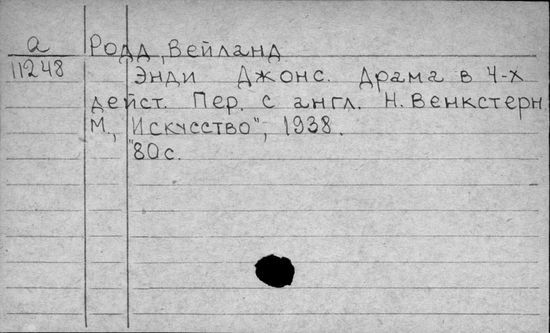 а
11248
Родд, Вейланд
Энди Джонс. Драма в 4-х
дейст. Пер. с англ. Н. Венкстерн
М., "Искусство", 1938.
80с.